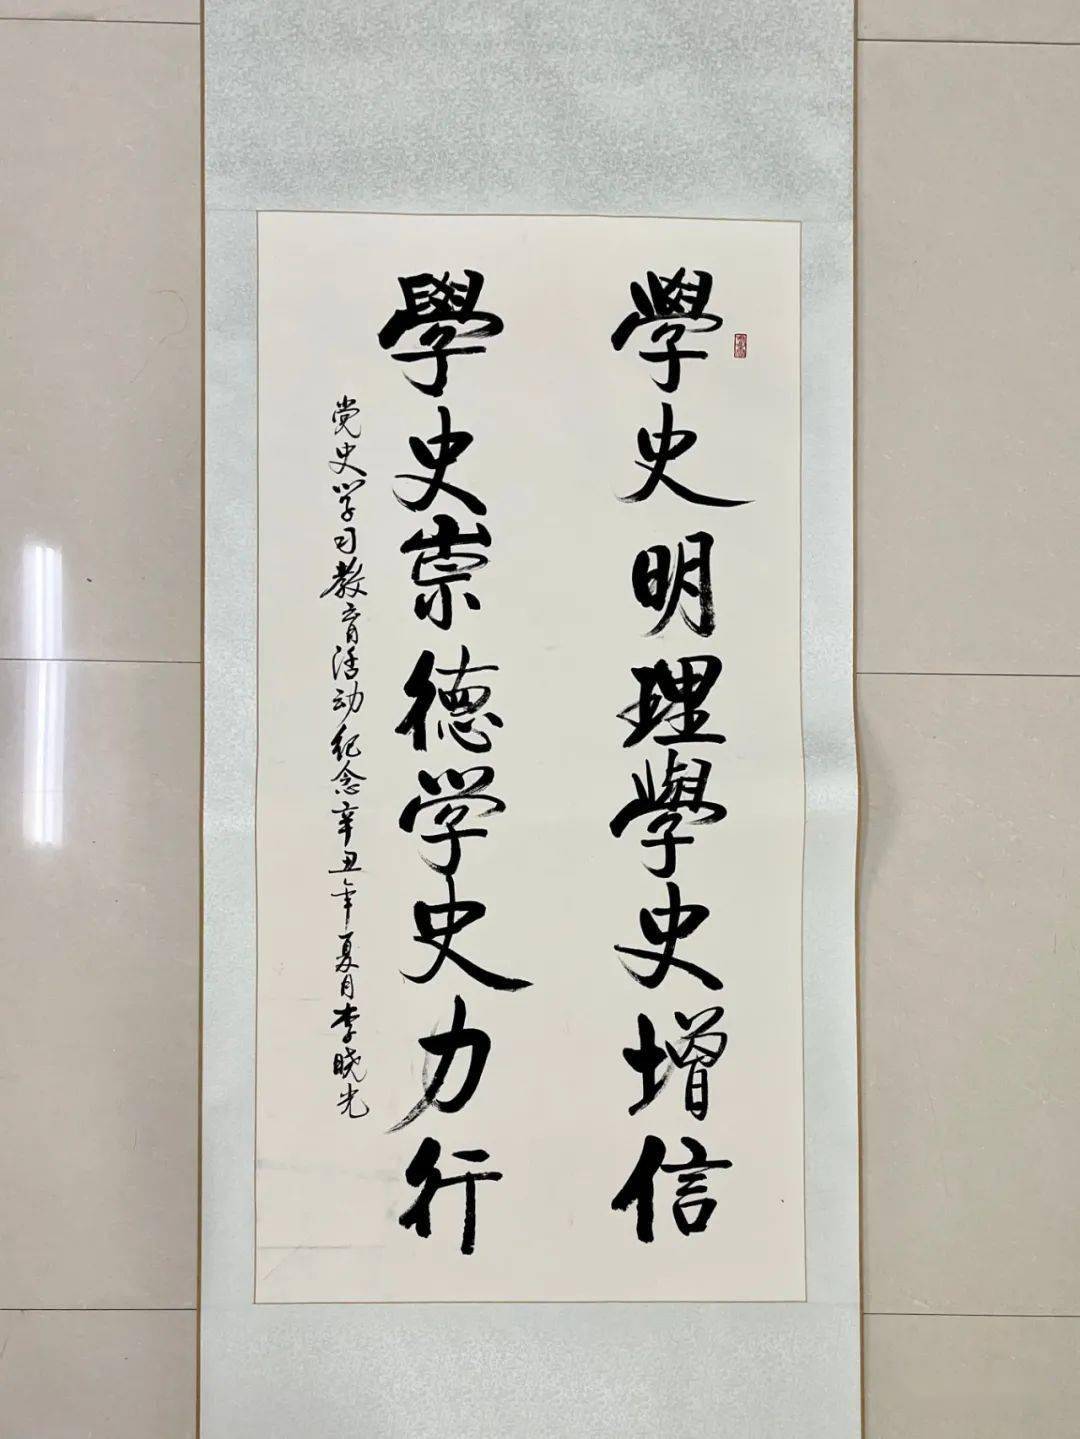 學史明理學史增信
學史崇德学史力行
党史学习教育活动纪念辛丑年夏月李晓光